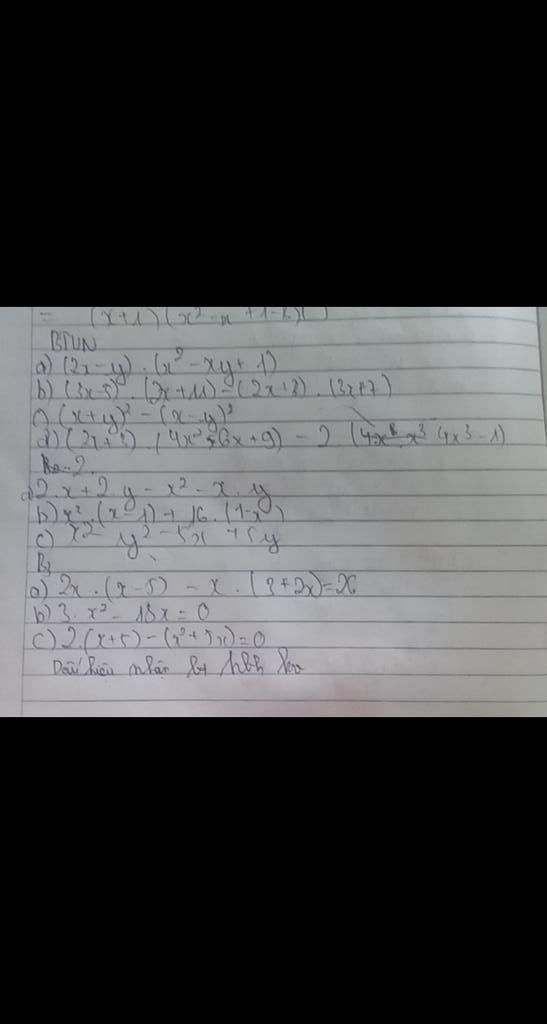 = (x+1)(x² - x + 1 -
BTVN
a) (2x-y) . (x² - xy + 1)
b) (3x-5) . (2x+11) - (2x+3) . (3x+7)
c) (x+y)² - (x-y)²
d) (2x+3) . (4x² - 6x + 9) - 2 (4x³ - 1)
B 2.
a) 2.x + 2.y - x² - x.y
b) x² . (x-1) + 16 . (1-x)
c) x² - y² - 5x + 5y
B3
a) 2x . (x-5) - x . (3+2x) = 26
b) 3.x² - 18x = 0
c) 2.(x+5) - (x²+5x) = 0
Dấu hiệu nhận bt hbh